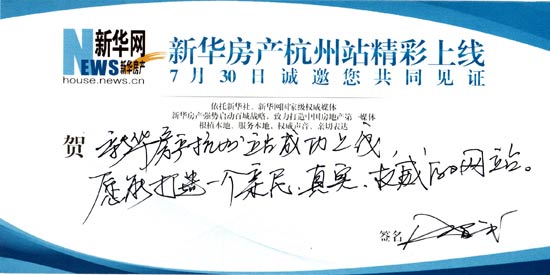 新华网
NEWS 新华房产
house.news.cn
新华房产杭州站精彩上线
7月30日诚邀您共同见证
依托新华社、新华网国家级权威媒体
新华房产强势启动百城战略,致力打造中国房地产第一媒体
根植本地、服务本地、权威声音、亲切表达
贺 新华房产杭州站成功上线,
愿能打造一个亲民、真实、权威的网站。
签名